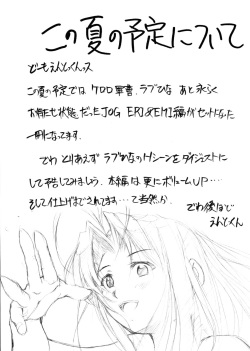 この夏の予定について
どーもえんとくんっス
この夏の予定では ケロロ軍曹、ラブひな あと永らく
お待たせ状態だったJOG ERI&EMI編がセットになった
一冊になってます。
でわ とりあえず ラブひなのHシーンをダイジェストに
して予告してみましょう。本編は更にボリュームUP…
そして仕上げまでされてます…て当然か。
でわ後ほど
えんとくん